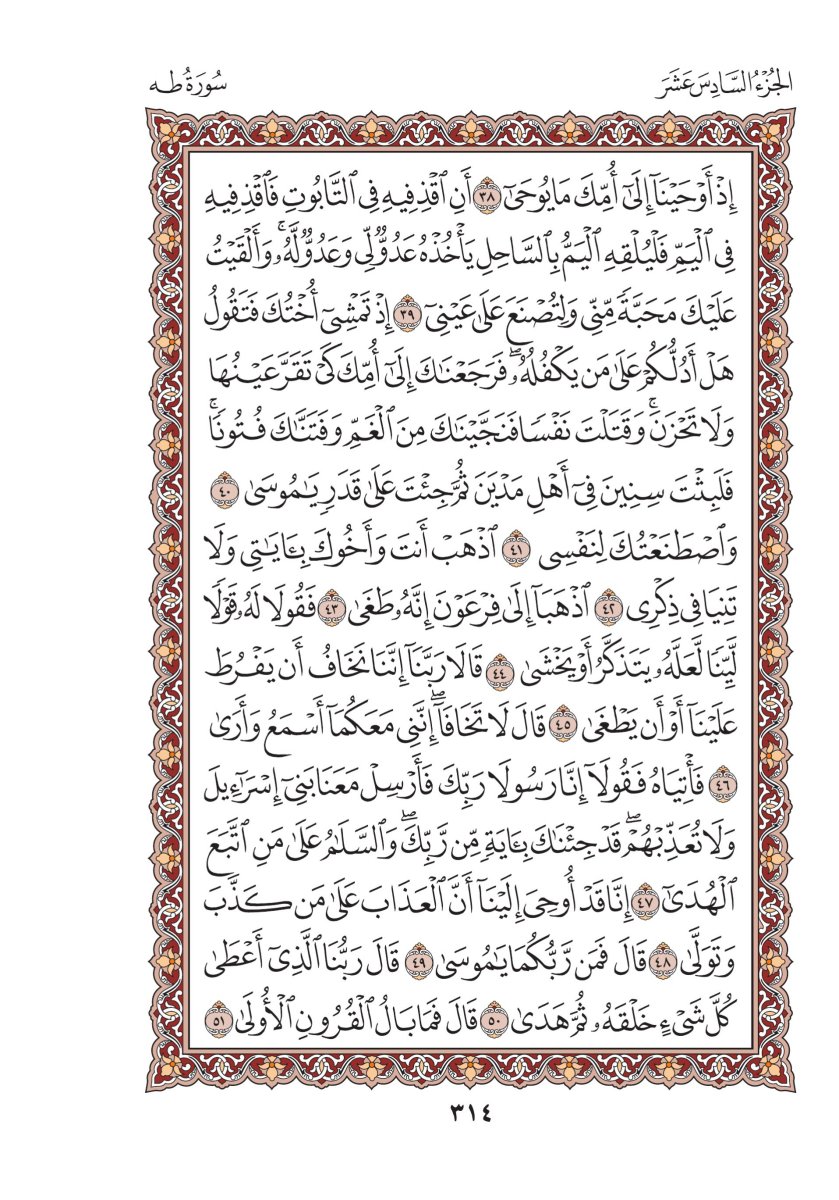 الجُزْءُ السَّادِسَ عَشَرَ
سُورَةُ طه
إِذۡ أَوۡحَيۡنَآ إِلَىٰٓ أُمِّكَ مَا يُوحَىٰٓ ٣٨ أَنِ ٱقۡذِفِيهِ فِي ٱلتَّابُوتِ فَٱقۡذِفِيهِ
فِي ٱلۡيَمِّ فَلۡيُلۡقِهِ ٱلۡيَمُّ بِٱلسَّاحِلِ يَأۡخُذۡهُ عَدُوّٞ لِّي وَعَدُوّٞ لَّهُۥۚ وَأَلۡقَيۡتُ
عَلَيۡكَ مَحَبَّةٗ مِّنِّي وَلِتُصۡنَعَ عَلَىٰ عَيۡنِيٓ ٣٩ إِذۡ تَمۡشِيٓ أُخۡتُكَ فَتَقُولُ
هَلۡ أَدُلُّكُمۡ عَلَىٰ مَن يَكۡفُلُهُۥۖ فَرَجَعۡنَٰكَ إِلَىٰٓ أُمِّكَ كَيۡ تَقَرَّ عَيۡنُهَا
وَلَا تَحۡزَنَۚ وَقَتَلۡتَ نَفۡسٗا فَنَجَّيۡنَٰكَ مِنَ ٱلۡغَمِّ وَفَتَنَّٰكَ فُتُونٗاۚ
فَلَبِثۡتَ سِنِينَ فِيٓ أَهۡلِ مَدۡيَنَ ثُمَّ جِئۡتَ عَلَىٰ قَدَرٖ يَٰمُوسَىٰ ٤٠
وَٱصۡطَنَعۡتُكَ لِنَفۡسِي ٤١ ٱذۡهَبۡ أَنتَ وَأَخُوكَ بِـَٔايَٰتِي وَلَا
تَنِيَا فِي ذِكۡرِي ٤٢ ٱذۡهَبَآ إِلَىٰ فِرۡعَوۡنَ إِنَّهُۥ طَغَىٰ ٤٣ فَقُولَا لَهُۥ قَوۡلٗا
لَّيِّنٗا لَّعَلَّهُۥ يَتَذَكَّرُ أَوۡ يَخۡشَىٰ ٤٤ قَالَا رَبَّنَآ إِنَّنَا نَخَافُ أَن يَفۡرُطَ
عَلَيۡنَآ أَوۡ أَن يَطۡغَىٰ ٤٥ قَالَ لَا تَخَافَآۖ إِنَّنِي مَعَكُمَآ أَسۡمَعُ وَأَرَىٰ
٤٦ فَأۡتِيَاهُ فَقُولَآ إِنَّا رَسُولَا رَبِّكَ فَأَرۡسِلۡ مَعَنَا بَنِيٓ إِسۡرَٰٓءِيلَ
وَلَا تُعَذِّبۡهُمۡۖ قَدۡ جِئۡنَٰكَ بِـَٔايَةٖ مِّن رَّبِّكَۖ وَٱلسَّلَٰمُ عَلَىٰ مَنِ ٱتَّبَعَ
ٱلۡهُدَىٰٓ ٤٧ إِنَّا قَدۡ أُوحِيَ إِلَيۡنَآ أَنَّ ٱلۡعَذَابَ عَلَىٰ مَن كَذَّبَ
وَتَوَلَّىٰ ٤٨ قَالَ فَمَن رَّبُّكُمَا يَٰمُوسَىٰ ٤٩ قَالَ رَبُّنَا ٱلَّذِيٓ أَعۡطَىٰ
كُلَّ شَيۡءٍ خَلۡقَهُۥ ثُمَّ هَدَىٰ ٥٠ قَالَ فَمَا بَالُ ٱلۡقُرُونِ ٱلۡأُولَىٰ ٥١
٣١٤